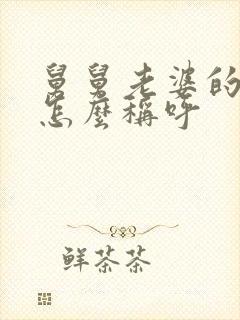 舅舅老婆的
怎麼稱呼
鮮茶茶